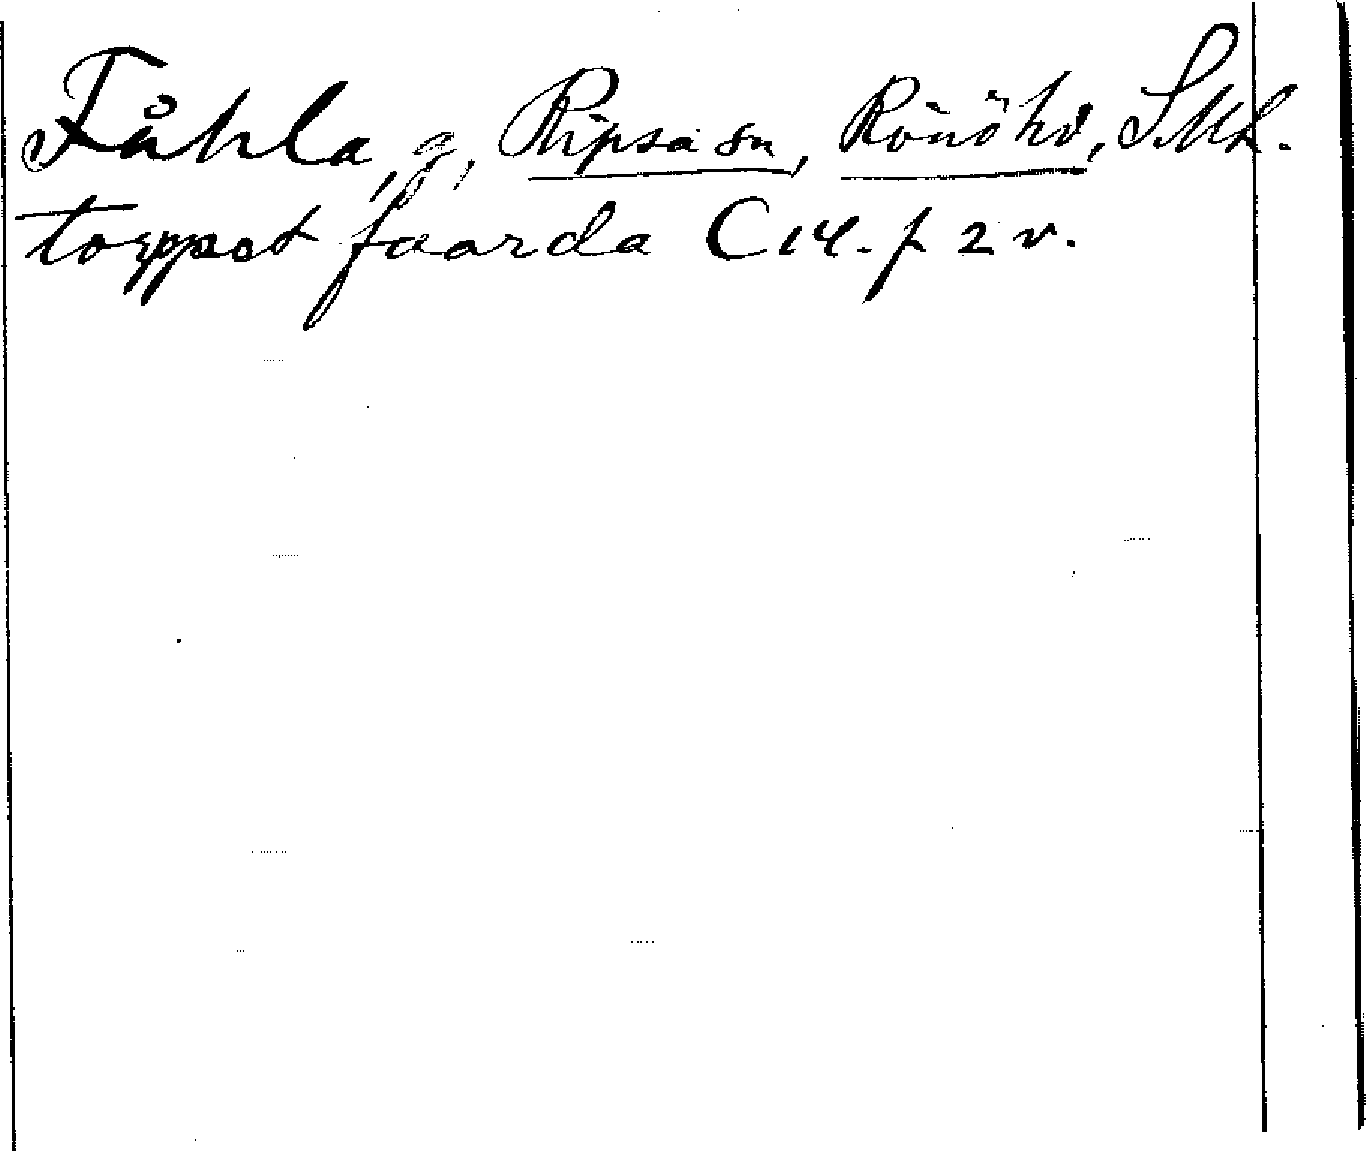 Fårla, g, Ripsa sn, Rönöhd, Smh.
torppet faarda C 14. f 2 v.